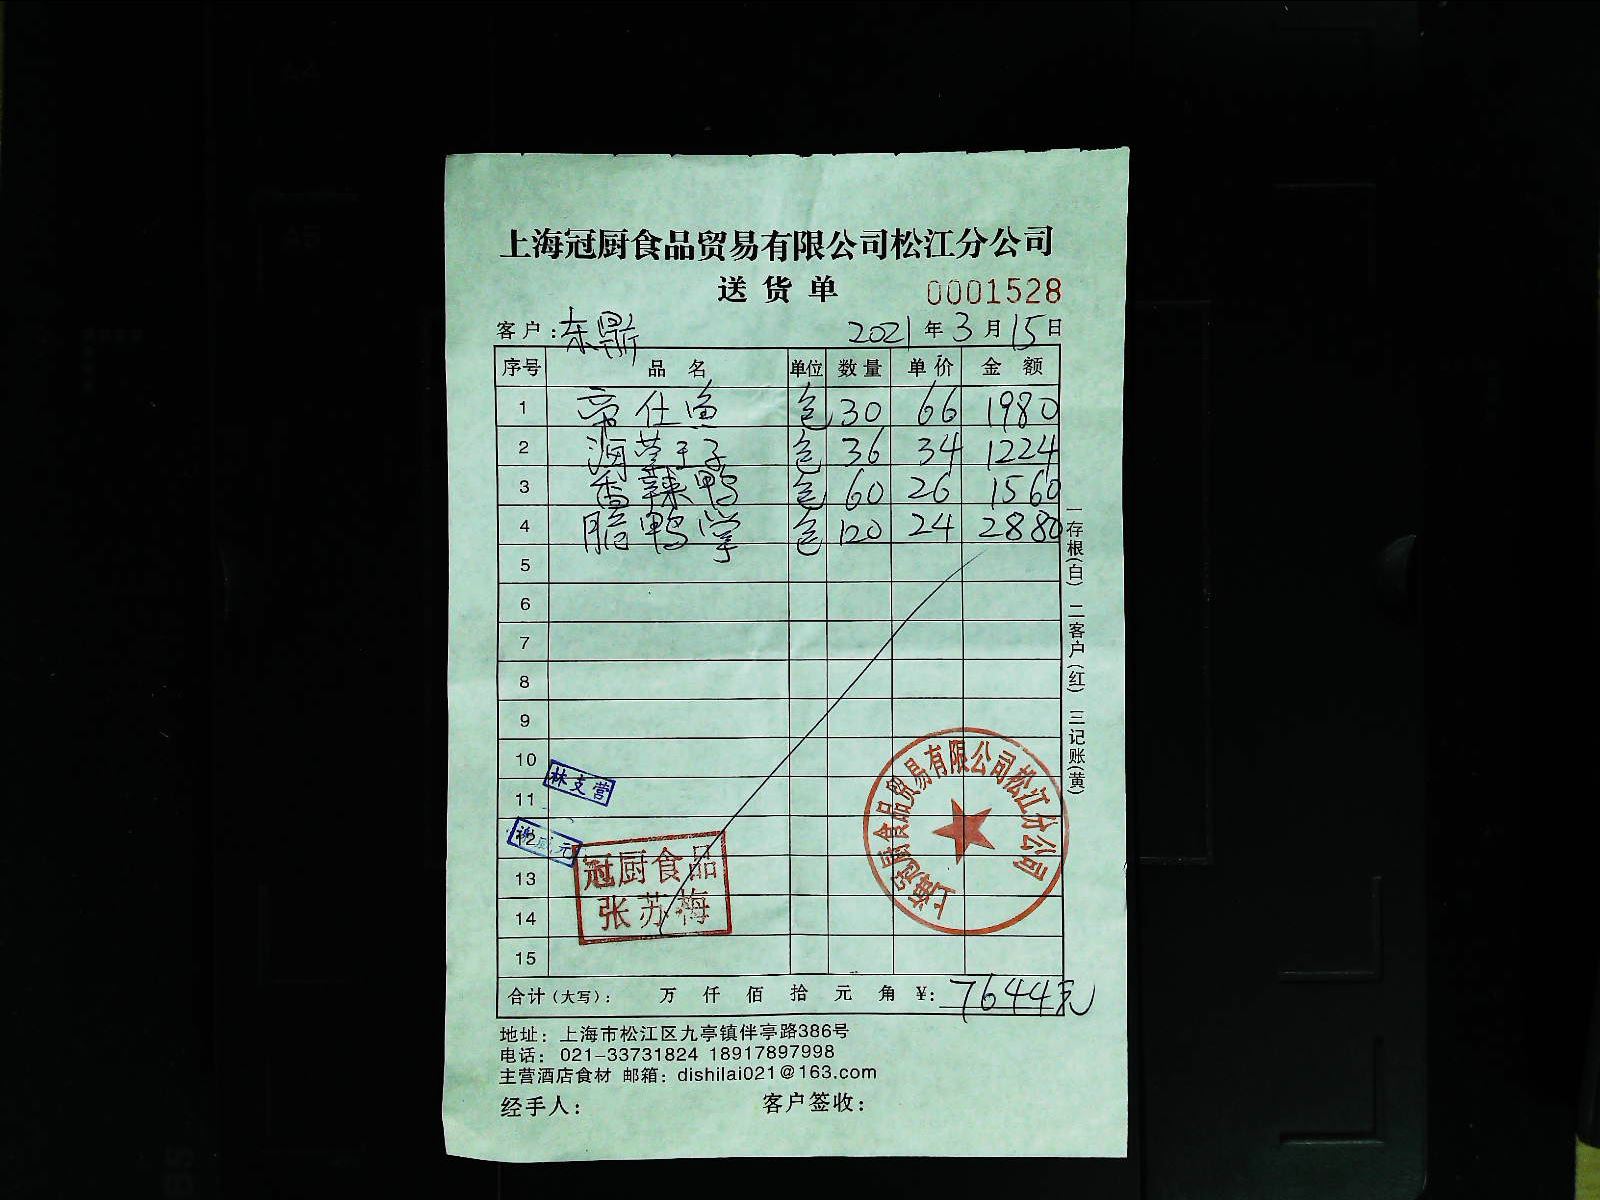 上海冠厨食品贸易有限公司松江分公司
送货单 0001528
客户:东鼎 2021年3月15日
序号 品名 单位 数量 单价 金额
1 帝仕鱼 包 30 66 1980
2 海草王子 包 36 34 1224
3 香辣鸭 包 60 26 1560
4 腊鸭掌 包 120 24 2880
5
6
7
8
9
10
11
13
14
15
一存根(白) 二客户(红) 三记账(黄)
林支营
冠厨食品
张苏梅
上海冠厨食品贸易有限公司松江分公司
合计(大写): 万 仟 佰 拾 元 角 ¥:7644元
地址:上海市松江区九亭镇伴亭路386号
电话:021-33731824 18917897998
主营酒店食材 邮箱:dishilai021@163.com
经手人: 客户签收: